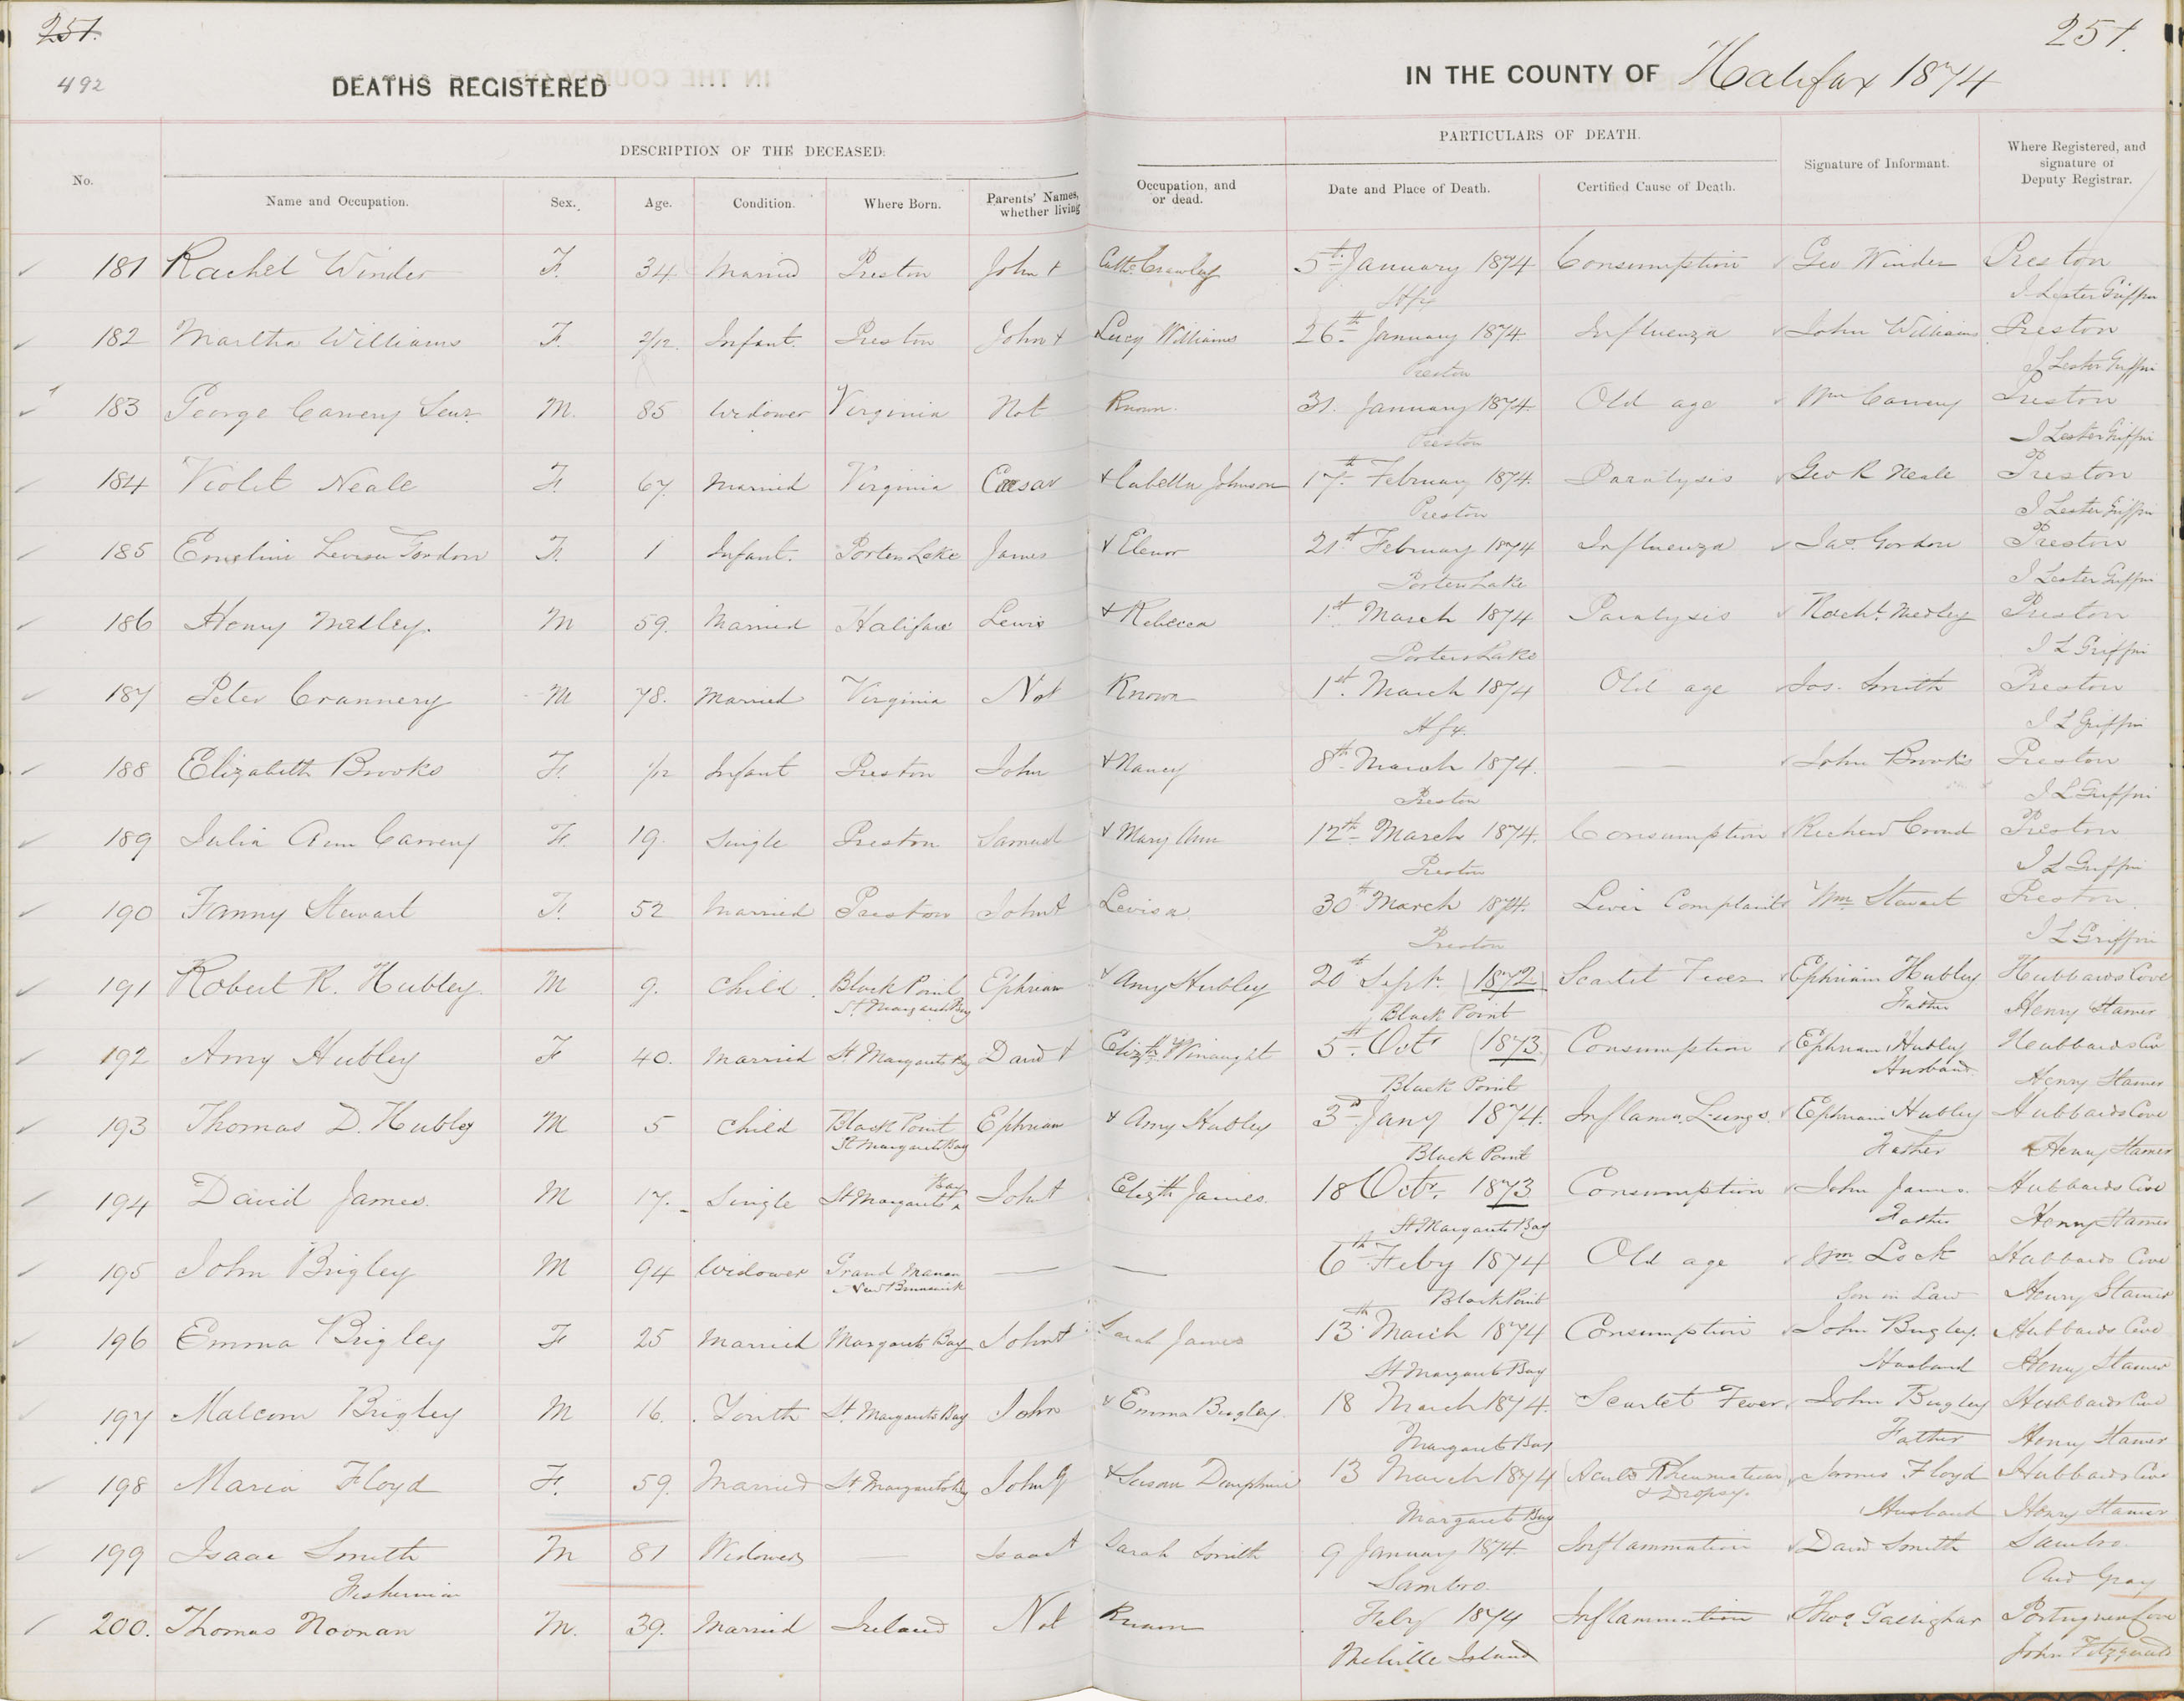 251.
251.
492
DEATHS REGISTERED
IN THE COUNTY OF Halifax 1874
DESCRIPTION OF THE DECEASED.
PARTICULARS OF DEATH.
No.
Name and Occupation.
Sex.
Age.
Condition.
Where Born.
Parents' Names, whether living
Occupation, and or dead.
Date and Place of Death.
Certified Cause of Death.
Signature of Informant.
Where Registered, and signature of Deputy Registrar.
181 Rachel Winder F. 34 Married Preston John + Cathe Crawley 5th January 1874 Consumption Geo Winder Preston
Hfx J Lester Griffin
182 Martha Williams F. 2/12 Infant. Preston John + Lucy Williams 26th January 1874 Influenza John Williams Preston
Preston J Lester Griffin
183 George Carvery Senr. M. 85 Widower Virginia Not Known. 31. January 1874 Old age Wm Carvery Preston
Preston J Lester Griffin
184 Violet Neale F. 67 Married Virginia Caesar + Cubella Johnson 17th February 1874. Paralysis Geo R Neale Preston
Preston J Lester Griffin
185 Ernstine Levisa Gordon F. 1 Infant. Porters Lake James + Elenor 21st February 1874 Influenza Jas. Gordon Preston
Porters Lake J Lester Griffin
186 Henry Medley. M 59. Married Halifax Lewis + Rebecca 1st March 1874 Paralysis Rachl. Medley Preston
Porters Lake J L Griffin
187 Peter Crannery M 78. Married Virginia Not Known 1st. March 1874 Old age Jos. Smith Preston
Hfx. J L Griffin
188 Elizabeth Brooks F. 1/12 Infant Preston John + Nancy 8th March 1874. — John Brooks Preston
Preston J L Griffin
189 Julia Ann Carvery F. 19. Single Preston Samuel + Mary Ann 12th March 1874. Consumption Preston
Preston J L Griffin
190 Fanny Stewart F. 52 Married Preston John + Levisa 30th March 1874. Liver Complaint Wm Stewart Preston
Preston J L Griffin
191 Robert R. Hubley M 9. Child Black Point Ephriam + Amy Hubley 20th Sept. (1872) Scarlet Fever Ephriam Hubley Hubbards Cove
St Margarets Bay Black Point Father Henry Stamer
192 Amy Hubley F 40. Married St Margarets Bay David + Elizth Winaught 5th Octr (1873) Consumption Ephriam Hubley Hubbards Cov
Black Point Husband Henry Stamer
193 Thomas D. Hubley M 5 Child Black Point Ephriam + Amy Hubley 3d Jany 1874. Inflama. Lungs. Ephriam Hubley Hubbards Cove
St Margarets Bay Black Point Father Henry Stamer
194 David James. M 17. Single St Margarets Bay John + Elizth James. 18 Octr. 1873 Consumption John James. Hubbards Cove
St Margarets Bay Father Henry Stamer
195 John Brigley M 94 Widower Grand Manan — — 6th Feby 1874 Old age Wm Lock Hubbards Cove
New Brunswick Black Point Son in Law Henry Stamer
196 Emma Brigley F 25 Married Margarets Bay John + Sarah James 13th March 1874 Consumption John Brigley. Hubbards Cove
St Margarets Bay Husband Henry Stamer
197 Malcom Brigley M 16. Youth St. Margarets Bay John + Emma Brigley. 18 March 1874. Scarlet Fever John Brigley Hubbards Cove
Margarets Bay Father Henry Stamer
198 Maria Floyd F. 59. Married St. Margarets Bay John G + Susan Dauphnie 13 March 1874 Acute Rheumatism James Floyd Hubbards Cove
Margarets Bay & Dropsy. Husband Henry Stamer
199 Isaac Smith M 81 Widower — Isaac + Sarah Smith 9 January 1874. Inflammation David Smith Sambro.
Fisherman Sambro. And Gray
200. Thomas Noonan M. 39. Married Ireland Not Known Feby 1874 Inflammation Thos Gallighar Portuguese Cove
Melville Island John Fitzgerald